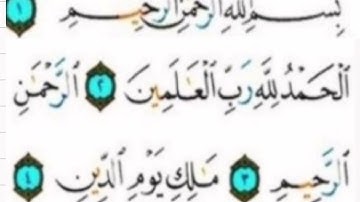 بِسْمِ اللهِ الرَّحْمٰنِ الرَّحِيمِ ١
الْحَمْدُ لِلّٰهِ رَبِّ الْعَالَمِينَ ٢ الرَّحْمٰنِ
الرَّحِيمِ ٣ مَالِكِ يَوْمِ الدِّينِ ٤